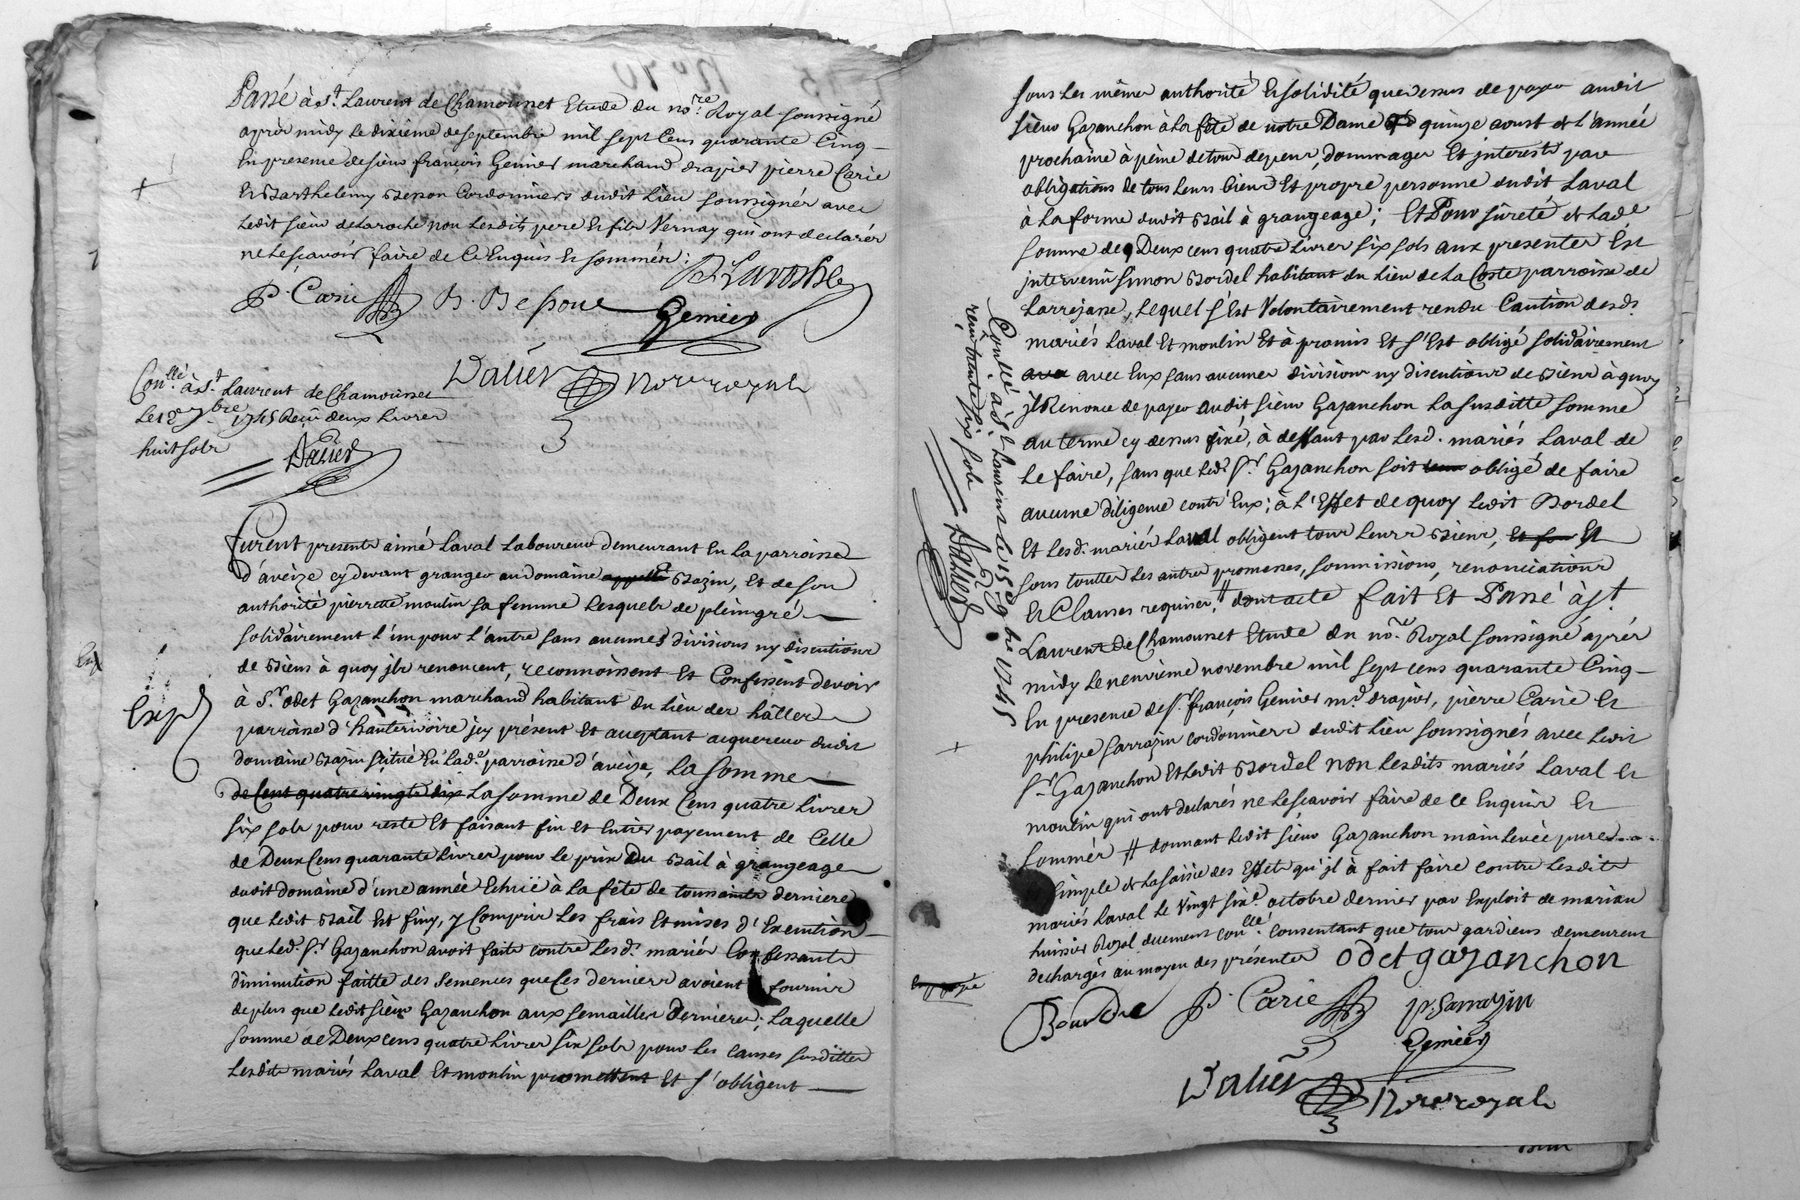 Passé à St. Laurent de Chamousset Etude du nore. Royal soussigné
après midy le dixième de septembre mil sept cens quarante Cinq
En presence de sieur françois Genier marchand drapier pierre Carie
et Barthelemy Besson Cordonniers dudit Lieu soussignés avec
ledit sieur delaroche non lesdits pere et fils Vernay qui ont declarés
ne le sçavoir faire de ce Enquis et sommés;
P. Carie B. Besson Genier
Dalier nore royal
Conllé à St. Laurent de Chamousset
le 18 7bre 1745 Reçu deux Livres
huit sols
Dalier
Furent presents aimé Laval Laboureur demeurant en la parroisse
d'aveize cy devant granger au domaine appellé Bazin, et de son
authorité pierrette moulin sa femme lesquels de plein gré
solidairement l'un pour l'autre sans aucunes divisions ny discutions
de Biens à quoy ils renoncent, reconnoissent et Confessent devoir
à Sr. odet Gazanchon marchand habitant du Lieu des hâlles
parroisse d'hauterivoire icy présent et acceptant acquereur dudit
domaine Bazin situé en lade. parroisse d'aveize, La somme
de Cent quatre vingts dix La somme de Deux Cens quatre Livres
six sols pour reste et faisant fin et entier payement de Celle
de Deux Cens quarante Livres pour le prix du Bail à grangeage
dudit domaine d'une année Echuë à la fête de toussaints derniere
que ledit Bail est finy, y Compris les frais et mises d'Execution
que led. Sr. Gazanchon avoit faits contre lesd. mariés
diminution faitte des semences que ces derniers avoient fournir
de plus que ledit sieur Gazanchon aux semailles dernieres; Laquelle
somme de Deux cens quatre Livres six sols pour les causes susdittes
Lesdits mariés Laval et moulin promettent et s'obligent
Exp.
sous les mêmes authorité et solidité que dessus de payer audit
sieur Gazanchon à la fête de notre Dame quinze aoust de l'année
prochaine à peine de tous depens, dommages et interests par
obligations de tous leurs biens et propre personne dudit Laval
à la forme dudit Bail à grangeage; Et Pour sûreté de lade
somme de Deux cens quatre livres six sols aux presentes Est
intervenu Simon Bordel habitant du Lieu de la Coste parroisse de
Larrajasse, Lequel s'Est Volontairement rendu Caution desds.
mariés Laval et moulin et à promis et s'est obligé solidairement
avec avec Eux sans aucunes divisions ny discutions de Biens à quoy
il Renonce de payer audit sieur Gazanchon La susditte somme
au terme cy dessus fixé, à deffaut par lesd. mariés Laval de
le faire, sans que led. Sr. Gazanchon soit obligé de faire
aucune diligence contr'Eux; à l'Effet de quoy ledit Bordel
Et lesd. mariés Laval obligent tous leurs Biens, Et
sous touttes les autres promesses, soumissions, renonciations
et Clauses requises, # dont acte fait et Passé à St.
Laurent de Chamousset Etude du nore. Royal soussigné après
midy le neuvième novembre mil sept cens quarante Cinq
En presence de Sr. françois Genier md. drapier, pierre Carie et
philipe Sarrazin cordonniers dudit Lieu soussignés avec ledit
Sr. Gazanchon et ledit Bordel non lesdits mariés Laval et
moulin qui ont declarés ne le sçavoir faire de ce Enquis et
sommés # donnant ledit sieur Gazanchon main levée pure
et simple de la saisie des Effets qu'il à fait faire contre lesdits
mariés Laval le vingt sixe. octobre dernier par Exploit de marian
huissier Royal duement conllé. consentant que tous gardiens demeurent
dechargés au moyen des présentes odet gazanchon
P. Carie P. Sarrazin
Genier
Dalier nore royal
Conllé à St. Laurent le 15 9bre 1745
reçu trente six sols
Dalier